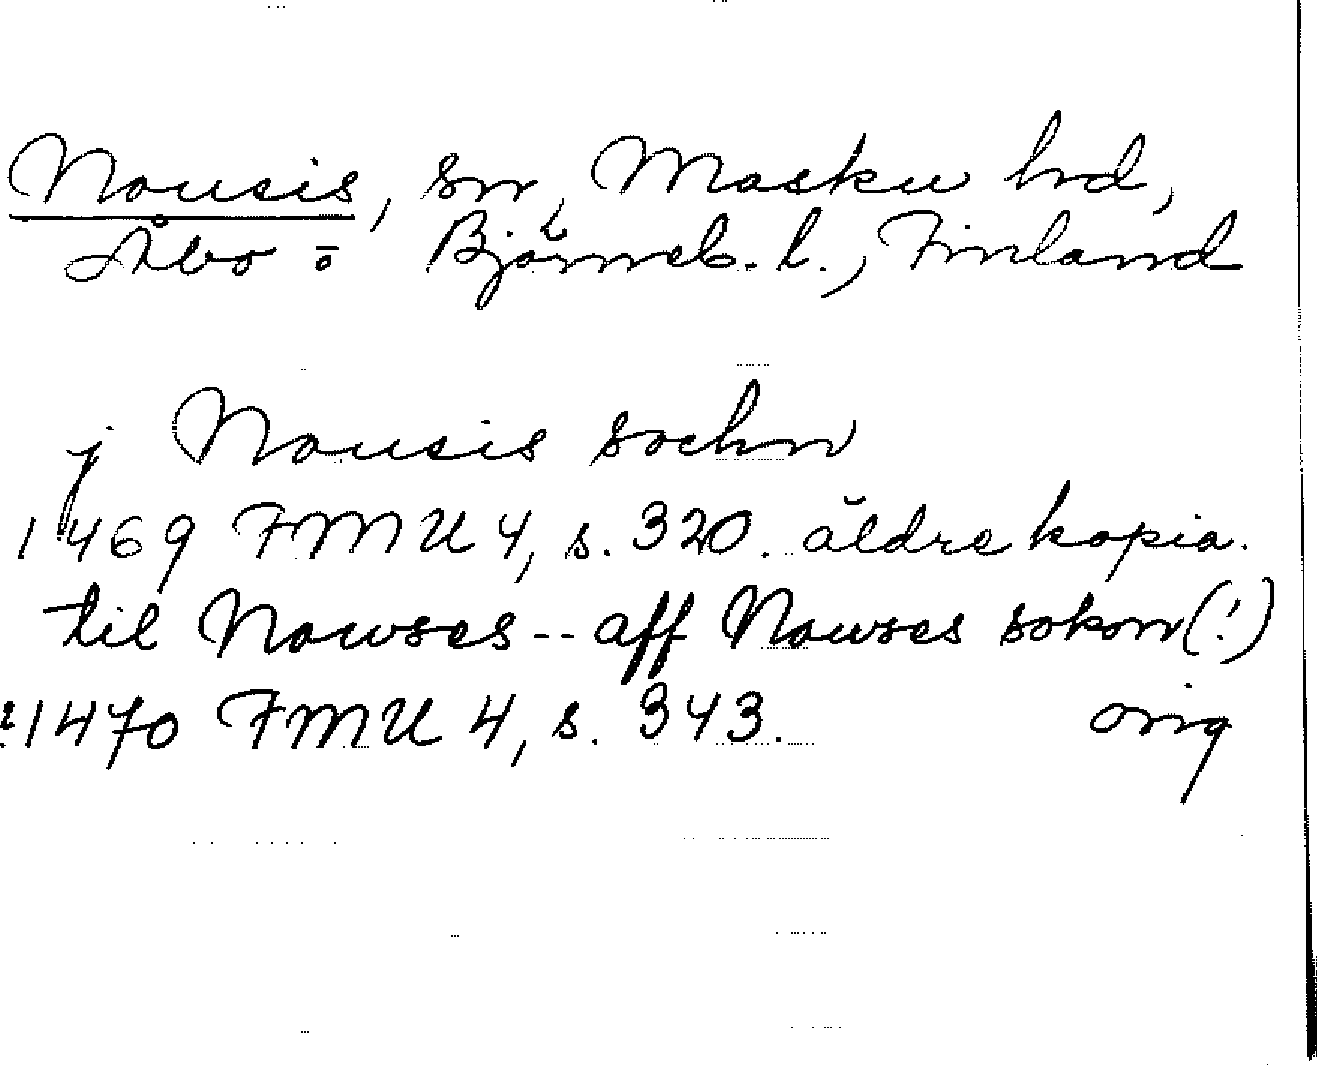 Nousis, sn, Masku hd,
Åbo o Björneb. l., Finland
j Nousis sochn
1469 FMU 4, s. 320. äldre kopia.
til Nowses -- aff Nowses sokon (!)
1470 FMU 4, s. 343. orig